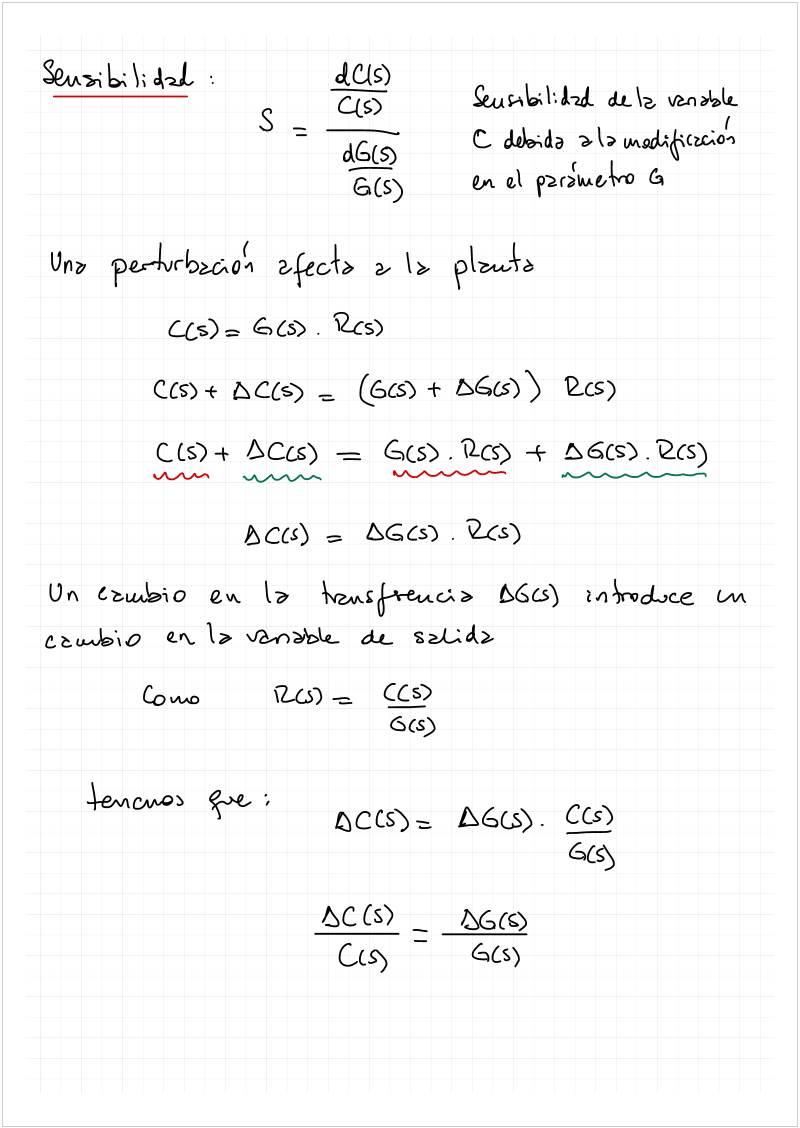 Sensibilidad :
S = (dC(s)/C(s)) / (dG(s)/G(s))
Sensibilidad de la variable
C debida a la modificación
en el parámetro G
Una perturbación afecta a la planta
C(s) = G(s) . R(s)
C(s) + ΔC(s) = (G(s) + ΔG(s)) R(s)
C(s) + ΔC(s) = G(s) . R(s) + ΔG(s) . R(s)
ΔC(s) = ΔG(s) . R(s)
Un cambio en la transfrencia ΔG(s) introduce un
cambio en la variable de salida
Como R(s) = C(s)/G(s)
tenemos que :
ΔC(s) = ΔG(s) . C(s)/G(s)
ΔC(s)/C(s) = ΔG(s)/G(s)